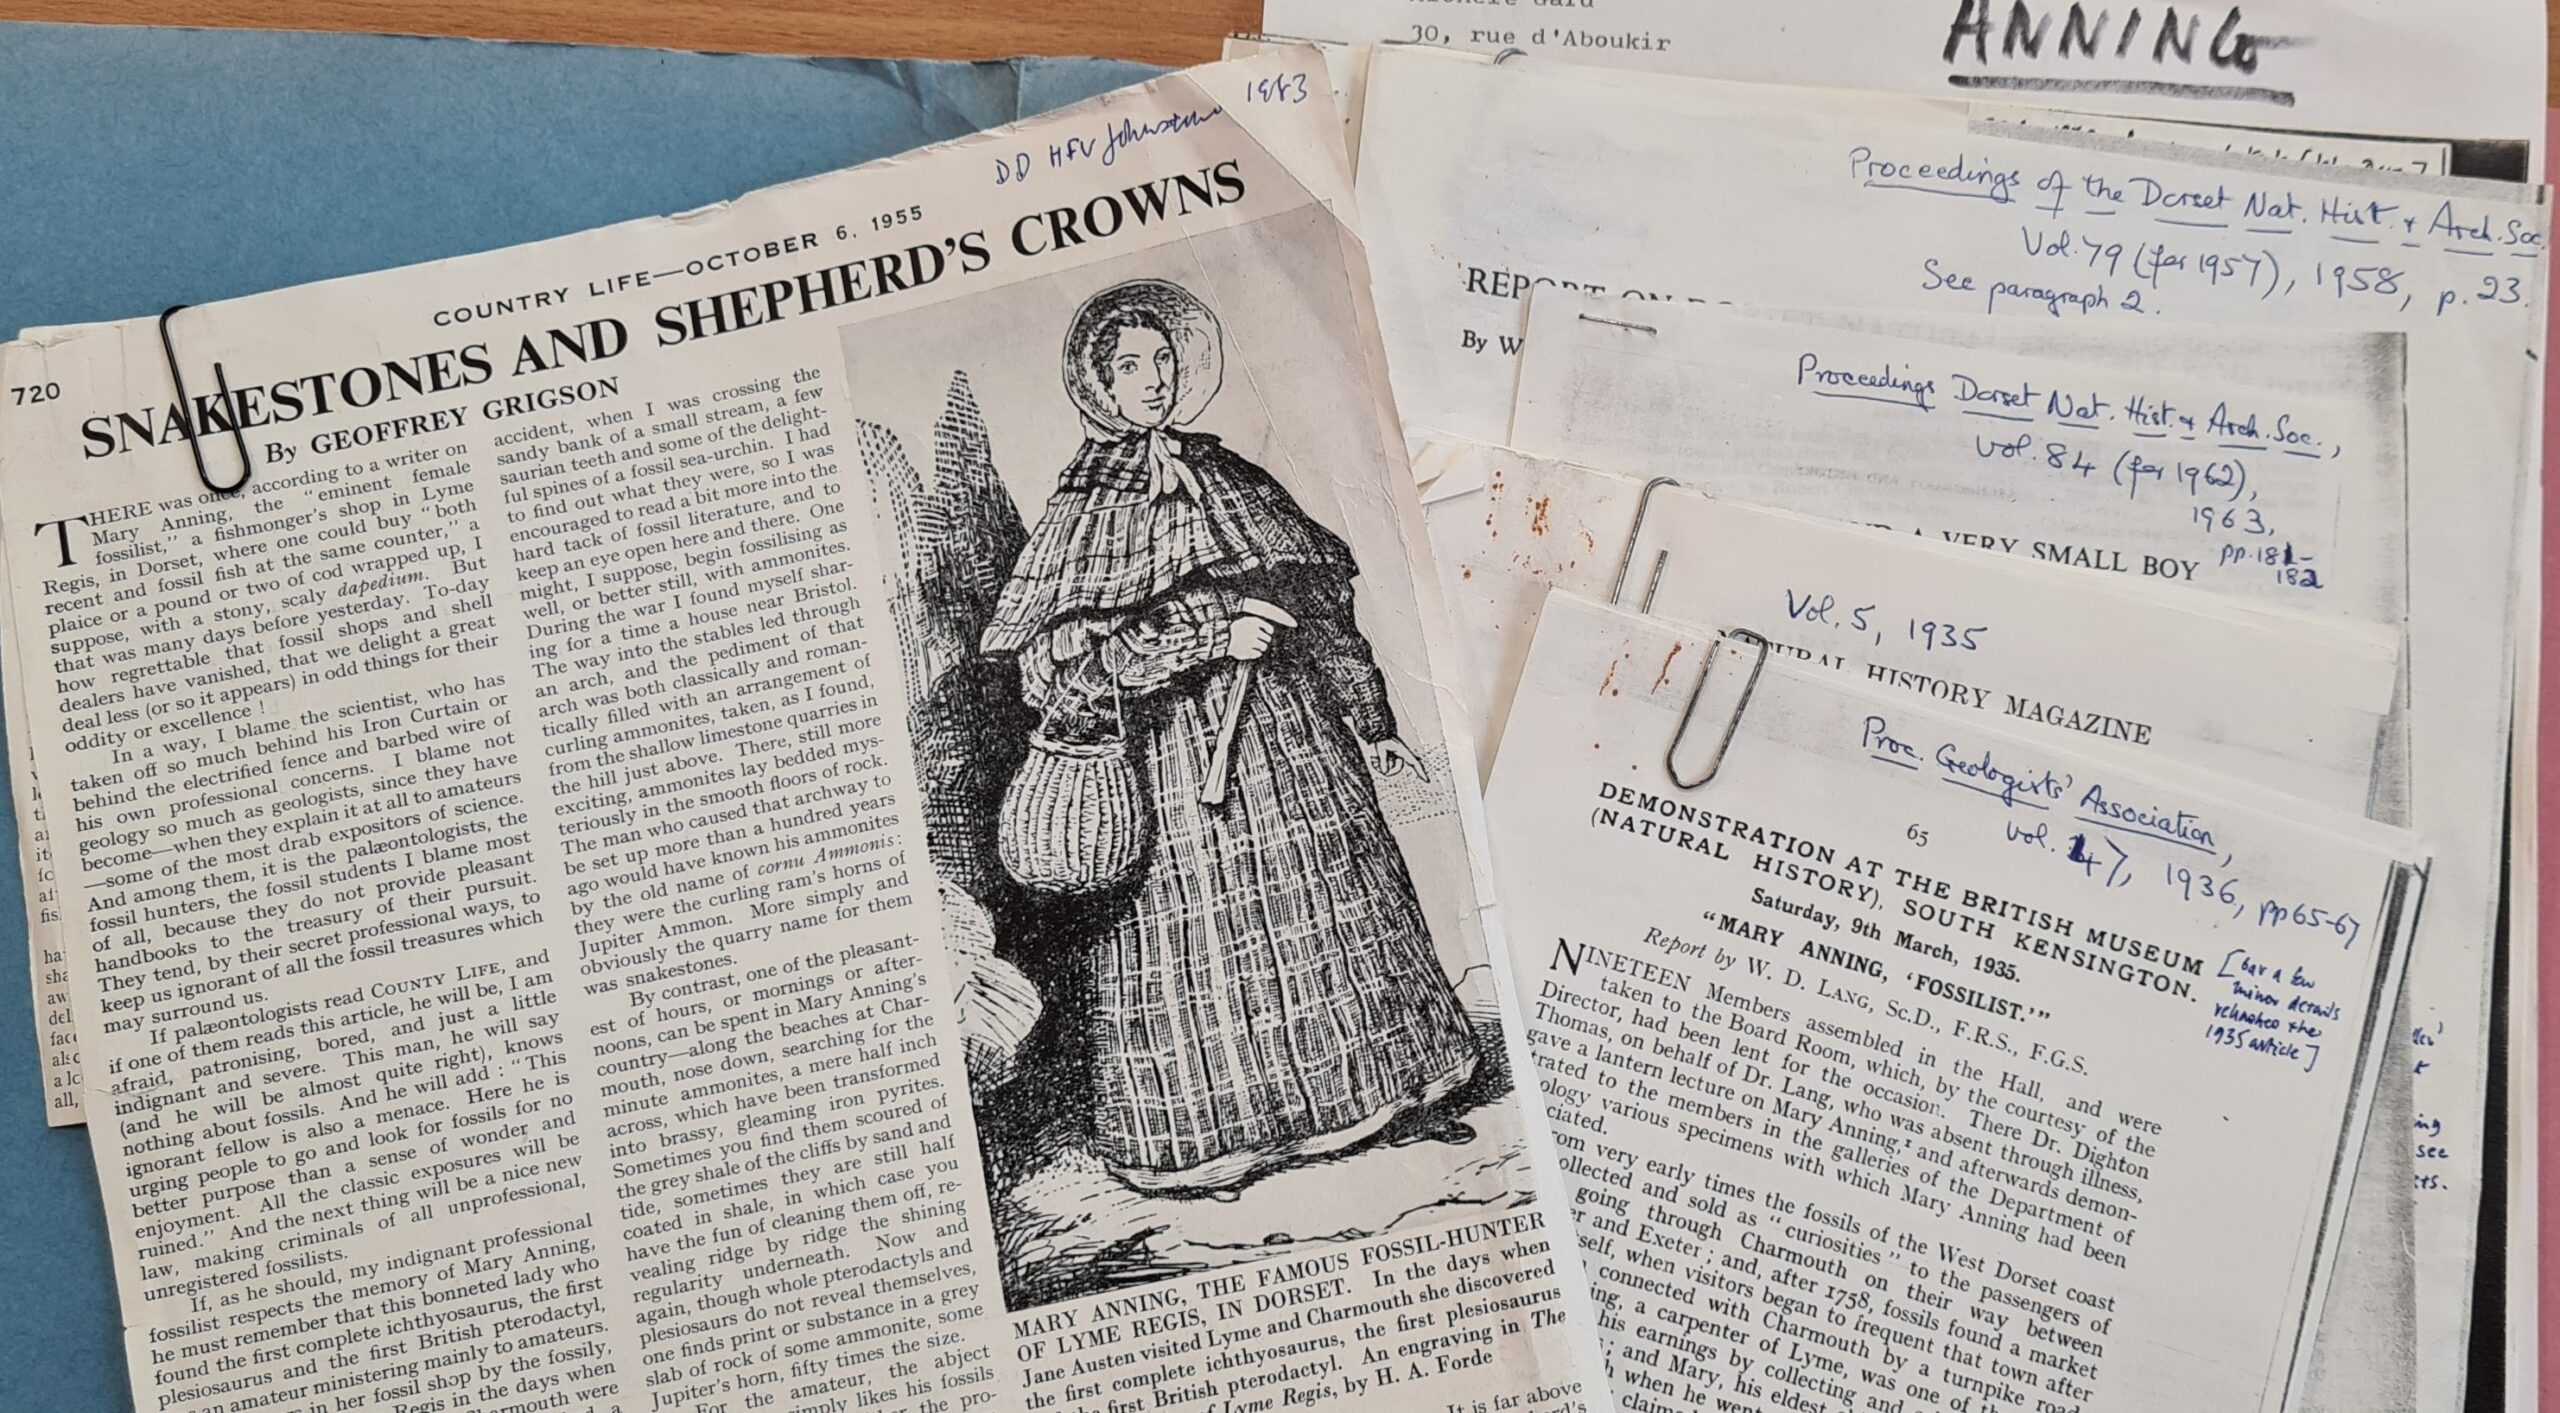 30, rue d'Aboukir
ANNING
DD HFV Johnstone 1983
COUNTRY LIFE—OCTOBER 6, 1955
720
SNAKESTONES AND SHEPHERD'S CROWNS
By GEOFFREY GRIGSON
THERE was once, according to a writer on
Mary Anning, the "eminent female
fossilist," a fishmonger's shop in Lyme
Regis, in Dorset, where one could buy "both
recent and fossil fish at the same counter," a
plaice or a pound or two of cod wrapped up, I
suppose, with a stony, scaly dapedium. But
that was many days before yesterday. To-day
how regrettable that fossil shops and shell
dealers have vanished, that we delight a great
deal less (or so it appears) in odd things for their
oddity or excellence !
In a way, I blame the scientist, who has
taken off so much behind his Iron Curtain or
behind the electrified fence and barbed wire of
his own professional concerns. I blame not
geology so much as geologists, since they have
become—when they explain it at all to amateurs
—some of the most drab expositors of science.
And among them, it is the palæontologists, the
fossil hunters, the fossil students I blame most
of all, because they do not provide pleasant
handbooks to the treasury of their pursuit.
They tend, by their secret professional ways, to
keep us ignorant of all the fossil treasures which
may surround us.
If palæontologists read COUNTY LIFE, and
if one of them reads this article, he will be, I am
afraid, patronising, bored, and just a little
indignant and severe. This man, he will say
(and he will be almost quite right), knows
nothing about fossils. And he will add : "This
ignorant fellow is also a menace. Here he is
urging people to go and look for fossils for no
better purpose than a sense of wonder and
enjoyment. All the classic exposures will be
ruined." And the next thing will be a nice new
law, making criminals of all unprofessional,
unregistered fossilists.
If, as he should, my indignant professional
fossilist respects the memory of Mary Anning,
he must remember that this bonneted lady who
found the first complete ichthyosaurus, the first
plesiosaurus and the first British pterodactyl,
an amateur ministering mainly to amateurs.
in her fossil shop by the fossily,
Regis in the days when
Charmouth were
accident, when I was crossing the
sandy bank of a small stream, a few
saurian teeth and some of the delight-
ful spines of a fossil sea-urchin. I had
to find out what they were, so I was
encouraged to read a bit more into the
hard tack of fossil literature, and to
keep an eye open here and there. One
might, I suppose, begin fossilising as
well, or better still, with ammonites.
During the war I found myself shar-
ing for a time a house near Bristol.
The way into the stables led through
an arch, and the pediment of that
arch was both classically and roman-
tically filled with an arrangement of
curling ammonites, taken, as I found,
from the shallow limestone quarries in
the hill just above. There, still more
exciting, ammonites lay bedded mys-
teriously in the smooth floors of rock.
The man who caused that archway to
be set up more than a hundred years
ago would have known his ammonites
by the old name of cornu Ammonis:
they were the curling ram's horns of
Jupiter Ammon. More simply and
obviously the quarry name for them
was snakestones.
By contrast, one of the pleasant-
est of hours, or mornings or after-
noons, can be spent in Mary Anning's
country—along the beaches at Char-
mouth, nose down, searching for the
minute ammonites, a mere half inch
across, which have been transformed
into brassy, gleaming iron pyrites.
Sometimes you find them scoured of
the grey shale of the cliffs by sand and
tide, sometimes they are still half
coated in shale, in which case you
have the fun of cleaning them off, re-
vealing ridge by ridge the shining
regularity underneath. Now and
again, though whole pterodactyls and
plesiosaurs do not reveal themselves,
one finds print or substance in a grey
slab of rock of some ammonite, some
Jupiter's horn, fifty times the size.
For the amateur, the abject
simply likes his fossils
the pro-
MARY ANNING, THE FAMOUS FOSSIL-HUNTER
OF LYME REGIS, IN DORSET. In the days when
Jane Austen visited Lyme and Charmouth she discovered
the first complete ichthyosaurus, the first plesiosaurus
first British pterodactyl. An engraving in The
of Lyme Regis, by H. A. Forde
It is far above
Proceedings of the Dorset Nat. Hist. & Arch. Soc.
Vol. 79 (for 1957), 1958, p. 23.
See paragraph 2.
REPORT ON
By W
Proceedings Dorset Nat. Hist. & Arch. Soc.,
Vol. 84 (for 1962),
1963,
pp. 181-
182
A VERY SMALL BOY
Vol. 5, 1935
NATURAL HISTORY MAGAZINE
Proc. Geologists' Association,
vol. 47, 1936, pp 65-67
65
DEMONSTRATION AT THE BRITISH MUSEUM
(NATURAL HISTORY), SOUTH KENSINGTON.
Saturday, 9th March, 1935.
"MARY ANNING, 'FOSSILIST.'"
Report by W. D. LANG, Sc.D., F.R.S., F.G.S.
[bar a few
minor details
rehashes the
1935 article]
NINETEEN Members assembled in the Hall, and were
taken to the Board Room, which, by the courtesy of the
Director, had been lent for the occasion. There Dr. Dighton
Thomas, on behalf of Dr. Lang, who was absent through illness,
gave a lantern lecture on Mary Anning,¹ and afterwards demon-
strated to the members in the galleries of the Department of
ology various specimens with which Mary Anning had been
ciated.
rom very early times the fossils of the West Dorset coast
ollected and sold as "curiosities" to the passengers of
going through Charmouth on their way between
er and Exeter ; and, after 1758, fossils found a market
self, when visitors began to frequent that town after
connected with Charmouth by a turnpike road
ing, a carpenter of Lyme, was one of
his earnings by collecting and
; and Mary, his eldest
when he went
see